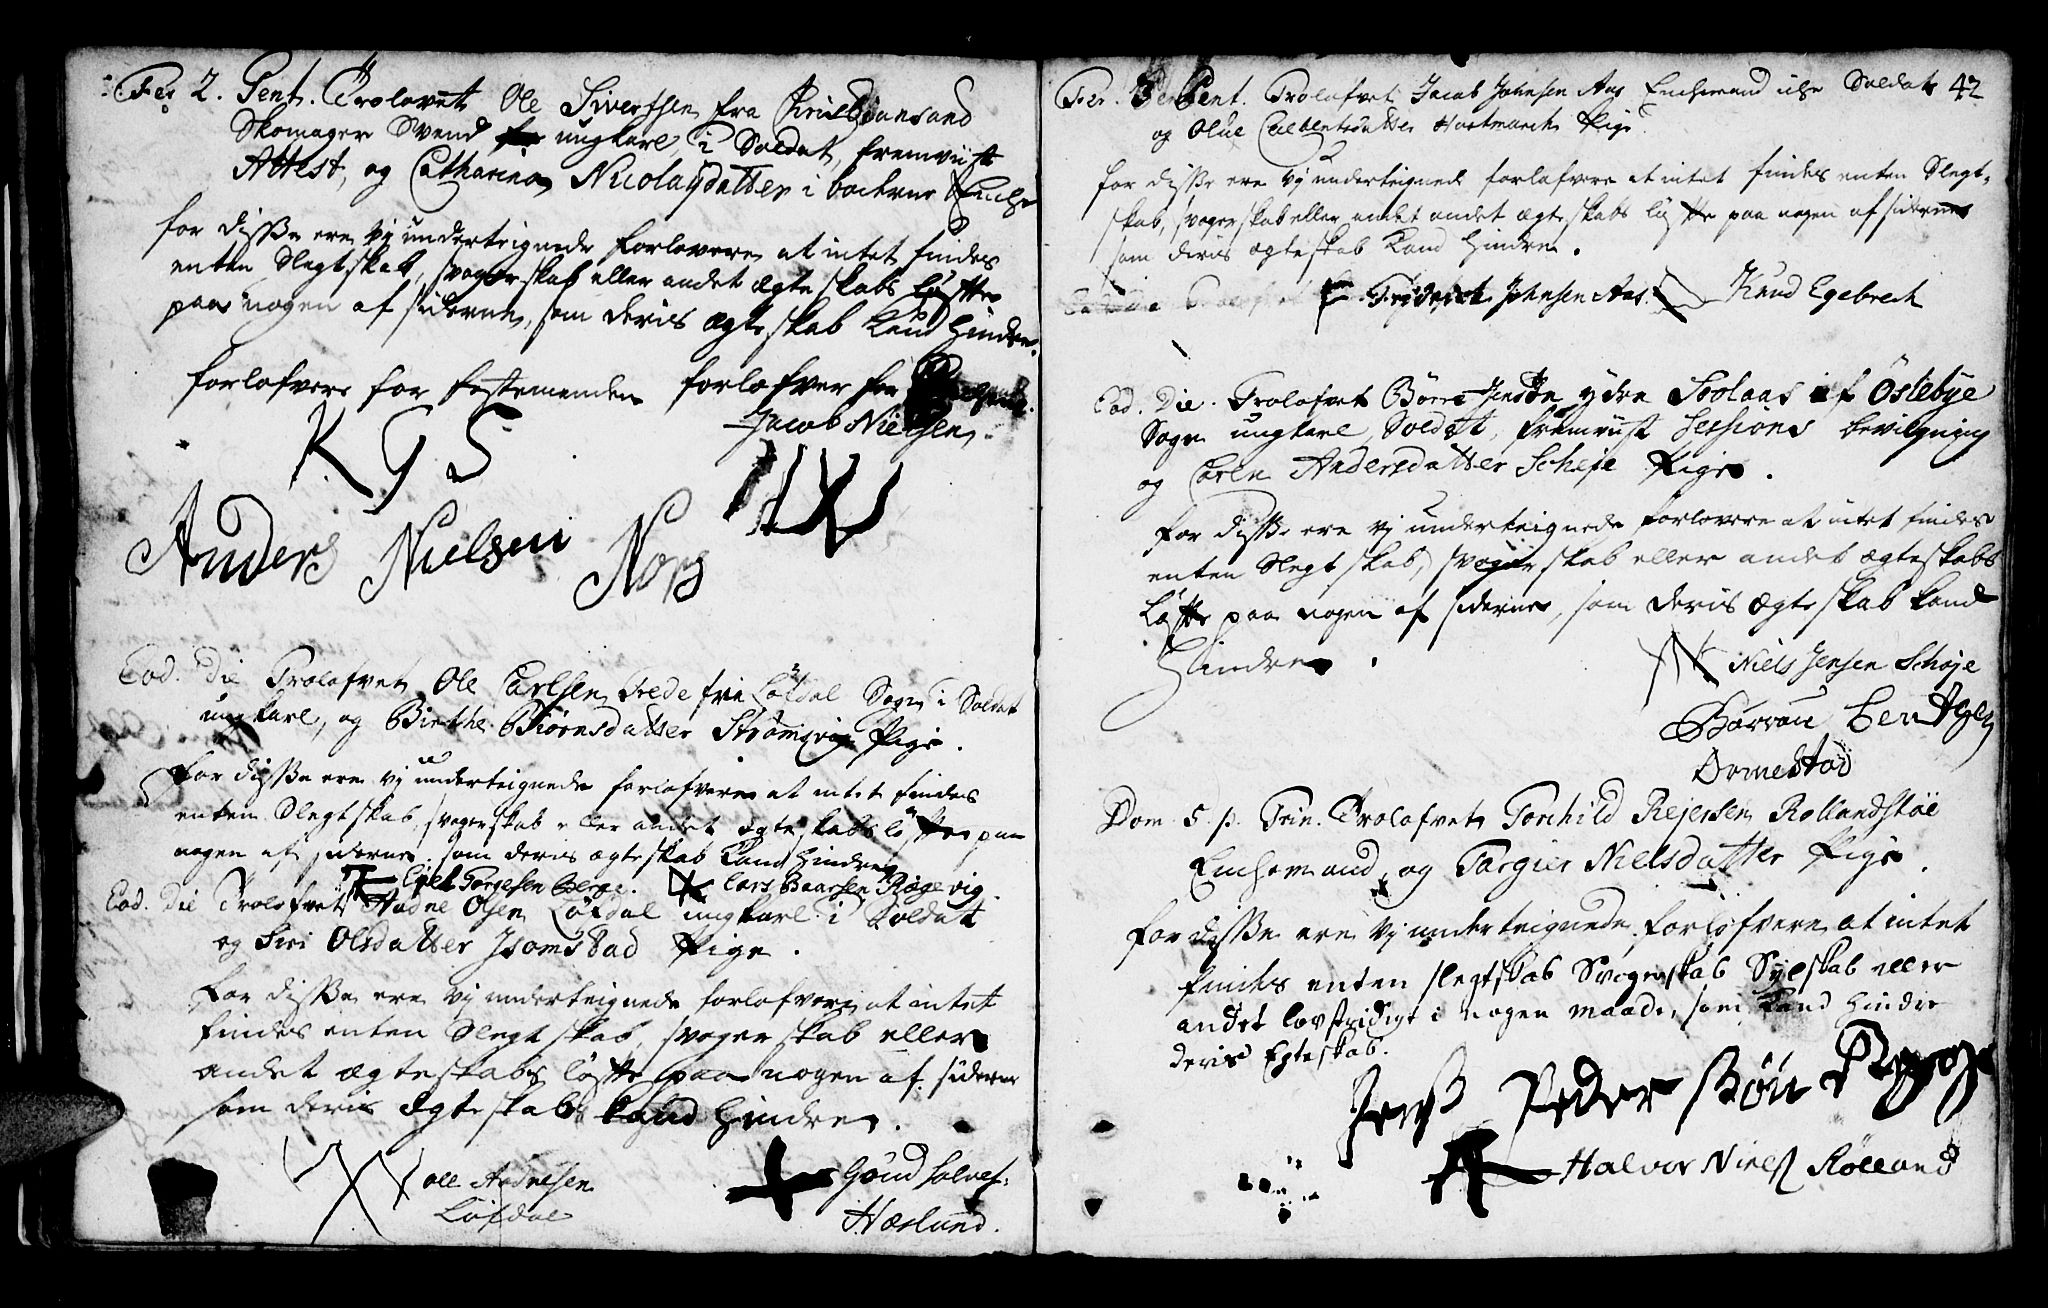 Fer 2. Pent. Trolovet Ole Siversen fra Christiansand
Skomager Svend ungkarl, i Soldat, fremviist
Attest, og Catharina Nicolaysdatter i Enche
for disse ere vj undertegnede forlovere at intet findes
enten Slegtskab, svogerskab eller andet ægteskabs løfte
paa nogen af siderne, som deris ægteskab kand hindre.
forlofvere for festemanden forlofver for
Jacob Nielsen
K G S
Anders Nielsen Nors
Eod. Die Trolofvet Ole Carlsen Trede fra Løfdal Sogn i Soldat
ungkarl, og Birthe Biørnsdatter Strømsvig Pige.
for disse ere vj undertegnede forlofvere at intet findes
enten Slegtskab, svogerskab eller andet ægteskabs løfte paa
nogen af siderne, som deris ægteskab kand hindre
Torgesen Berge. Lars Baarsen Røgevig
Eod. Die Trolofvet Audne Olsen Løfdal ungkarl i Soldat
og Siri Olsdatter Isomstad Pige.
for disse ere vj undertegnede forlofvere at intet
findes enten Slegtskab, svogerskab eller
andet ægteskabs løfte paa nogen af siderne
som deris ægteskab kand hindre.
Ole Audnesen
Løfdal
Goud Salves:
Hæslund.
42
Fer. Pent. Trolofvet Jacob Johnsen Aas Enchemand Soldat
og Olue Hortmarch Pige
for disse ere vj undertegnede forlofvere at intet findes enten Slegt-
skab, svogerskab eller andet andet ægteskabs løfte paa nogen af siderne
som deris ægteskab kand hindre.
Fridrich Johnsen Aas. Knud Egebrech
Eod. Die. Trolofvet Børre Jensen ydre Skolaas af Østebye
Sogn ungkarl, Soldat, fremviist Sessions bevilgning
og Caren Andersdatter Scheie Pige.
for disse ere vj undertegnede forlovere at intet findes
enten Slegtskab, svogerskab eller andet ægteskabs
løfte paa nogen af siderne, som deris ægteskab kand
hindre.
Niels Jensen Schøje
Børrou Bentsen
Dornestad
Dom. 5. p. Trin. Trolofvet Torchild Rejersen Rollandstøe
Enchemand, og Targier Nielsdatter Pige.
for disse ere vj undertegnede forlofvere at intet
findes enten slegtskab Svogerskab Sylskab eller
andet lovstridigt i nogen maade, som kand hindre
deris Egteskab.
Jens Peder Søn Rygge
Halvor Niels Rolland